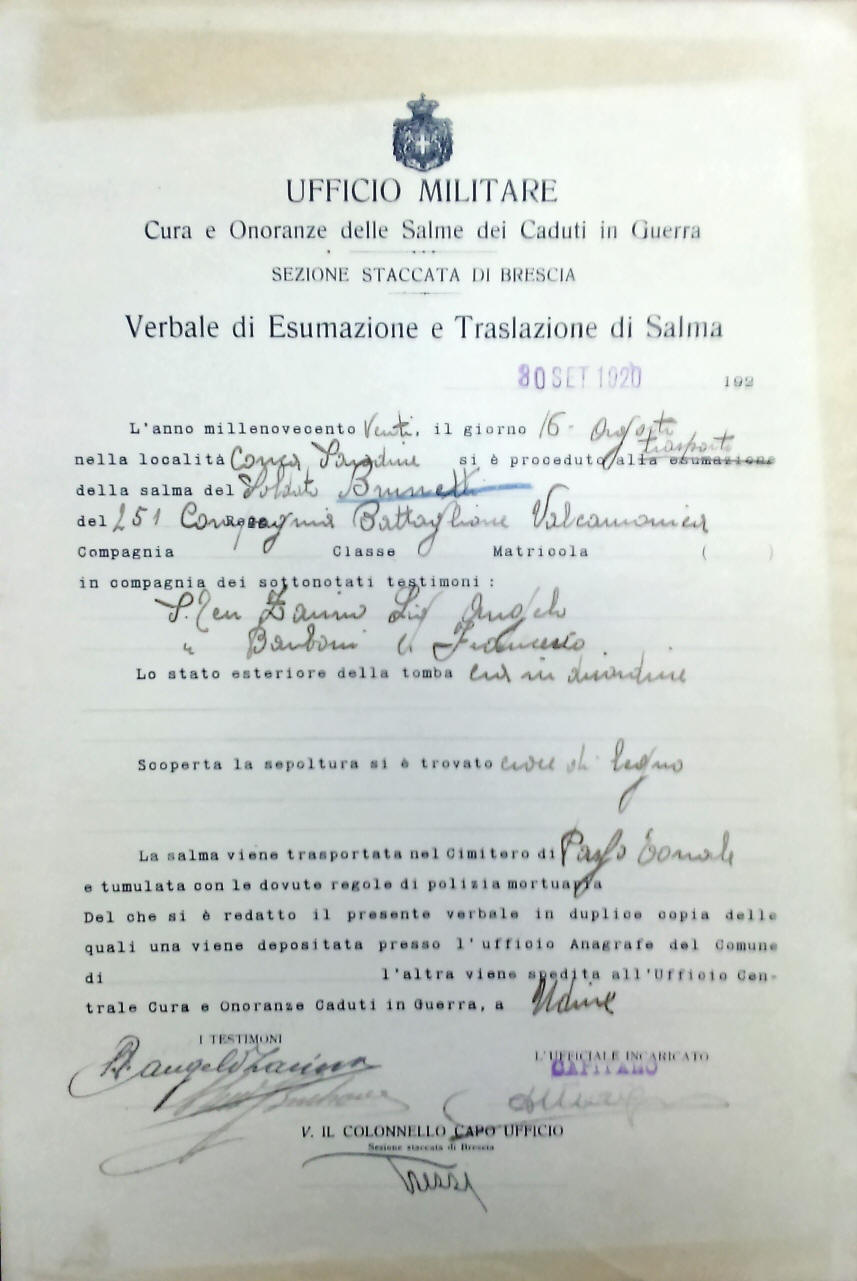 UFFICIO MILITARE
Cura e Onoranze delle Salme dei Caduti in Guerra
SEZIONE STACCATA DI BRESCIA
Verbale di Esumazione e Traslazione di Salma
30 SET 1920 192
L'anno millenovecento Venti, il giorno 16 - Agosto
trasporto
nella località Conca si è proceduto alla esumazione
della salma del Soldato Brunelli
del 251 Compagnia Battaglione Valcamonica
Compagnia Classe Matricola ( )
in compagnia dei sottonotati testimoni :
S. Ten Angelo
" Francesco
Lo stato esteriore della tomba era in disordine
Scoperta la sepoltura si è trovato croce di legno
La salma viene trasportata nel Cimitero di Passo Tonale
e tumulata con le dovute regole di polizia mortuaria
Del che si è redatto il presente verbale in duplice copia delle
quali una viene depositata presso l'ufficio Anagrafe del Comune
di l'altra viene spedita all'Ufficio Cen-
trale Cura e Onoranze Caduti in Guerra, a Udine
I TESTIMONI
L'UFFICIALE INCARICATO
CAPITANO
V. IL COLONNELLO CAPO UFFICIO
Sezione staccata di Brescia